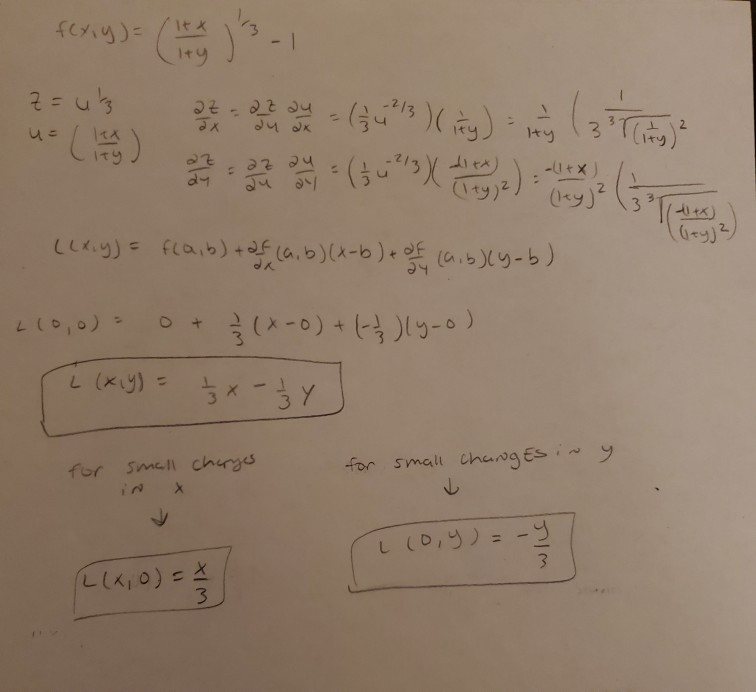 f(x,y) = ((1+x)/(1+y))^(1/3) - 1
z = u^(1/3)
u = ((1+x)/(1+y))
∂z/∂x = ∂z/∂u ∂u/∂x = (1/3 u^(-2/3))(1/(1+y)) = 1/(1+y) (1/(3 ∛((1/(1+y))^2
∂z/∂y = ∂z/∂u ∂u/∂y = (1/3 u^(-2/3))(-(1+x)/(1+y)^2) = -(1+x)/(1+y)^2 (1/(3 ∛((-(1+x)/(1+y)^2)
L(x,y) = f(a,b) + ∂f/∂x (a,b)(x-b) + ∂f/∂y (a,b)(y-b)
L(0,0) = 0 + 1/3 (x-0) + (-1/3)(y-0)
L(x,y) = 1/3 x - 1/3 y
for small changes
in x
↓
L(x,0) = x/3
for small changes in y
↓
L(0,y) = -y/3